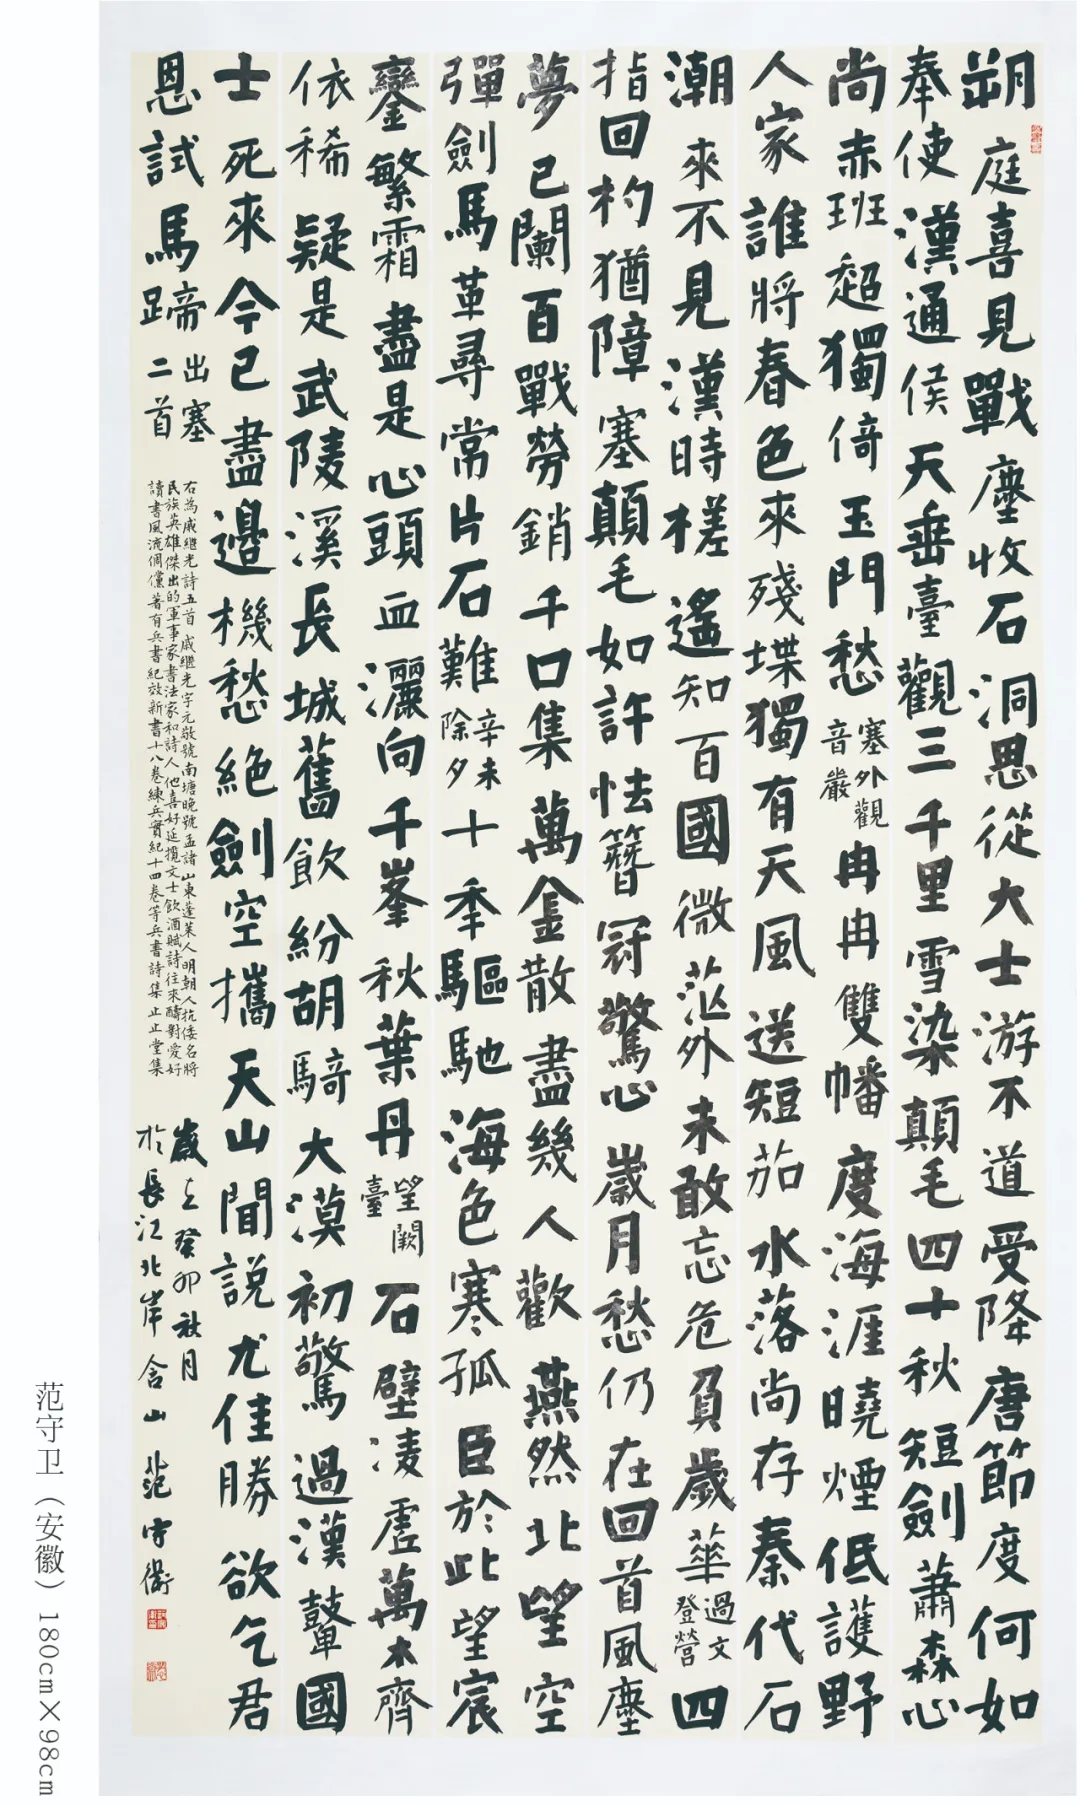 朔庭喜見戰塵收石洞思從大士游不道受降唐節度何如
奉使漢通侯天垂臺觀三千里雪染顛毛四十秋短劍蕭森心
尚赤班超獨倚玉門愁塞外觀音巖冉冉雙幡度海涯曉煙低護野
人家誰將春色來殘堞獨有天風送短茄水落尚存秦代石
潮來不見漢時槎遙知百國微茫外未敢忘危負歲華過文登營四
指回杓猶障塞顛毛如許怯簪冠驚心歲月愁仍在回首風塵
夢已闌百戰勞銷千口集萬金散盡幾人歡燕然北望空
彈劍馬革尋常片石難辛未除夕十秊驅馳海色寒孤臣於此望宸
鑾繁霜盡是心頭血灑向千峯秋葉丹望闕臺石壁凌虛萬木齊
依稀疑是武陵溪長城舊飲紛胡騎大漠初驚過漢鼙國
士死來今已盡邊機愁絕劍空攜天山聞說尤佳勝欲乞君
恩試馬蹄出塞二首
右為戚繼光詩五首戚繼光字元敬號南塘晚號孟諸山東蓬萊人明朝人抗倭名將
民族英雄傑出的軍事家書法家和詩人他喜好延攬文士飲酒賦詩往來酬對愛好
讀書風流倜儻著有兵書紀效新書十八卷練兵實紀十四卷等兵書詩集止止堂集
歲在癸卯秋月
於長江北岸含山范守衛
范守卫（安徽）180cm×98cm